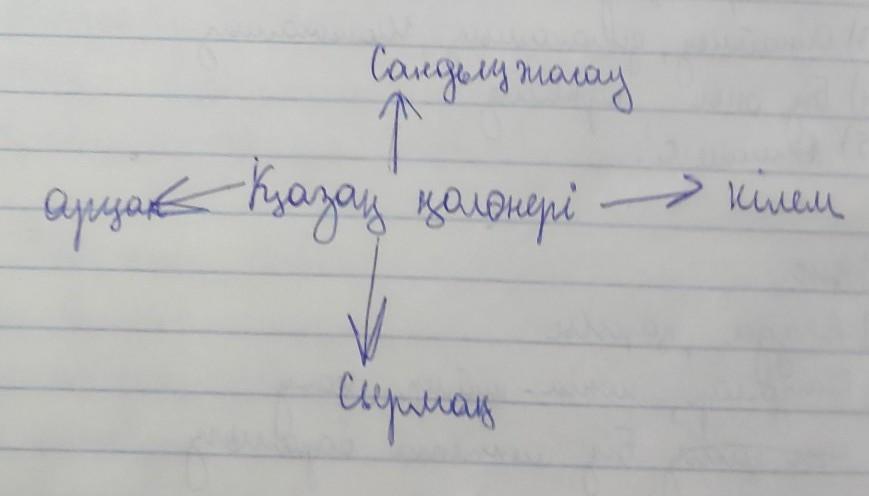 Сандық жалау
арқан Қазақ қолөнері кілем
Сырмақ